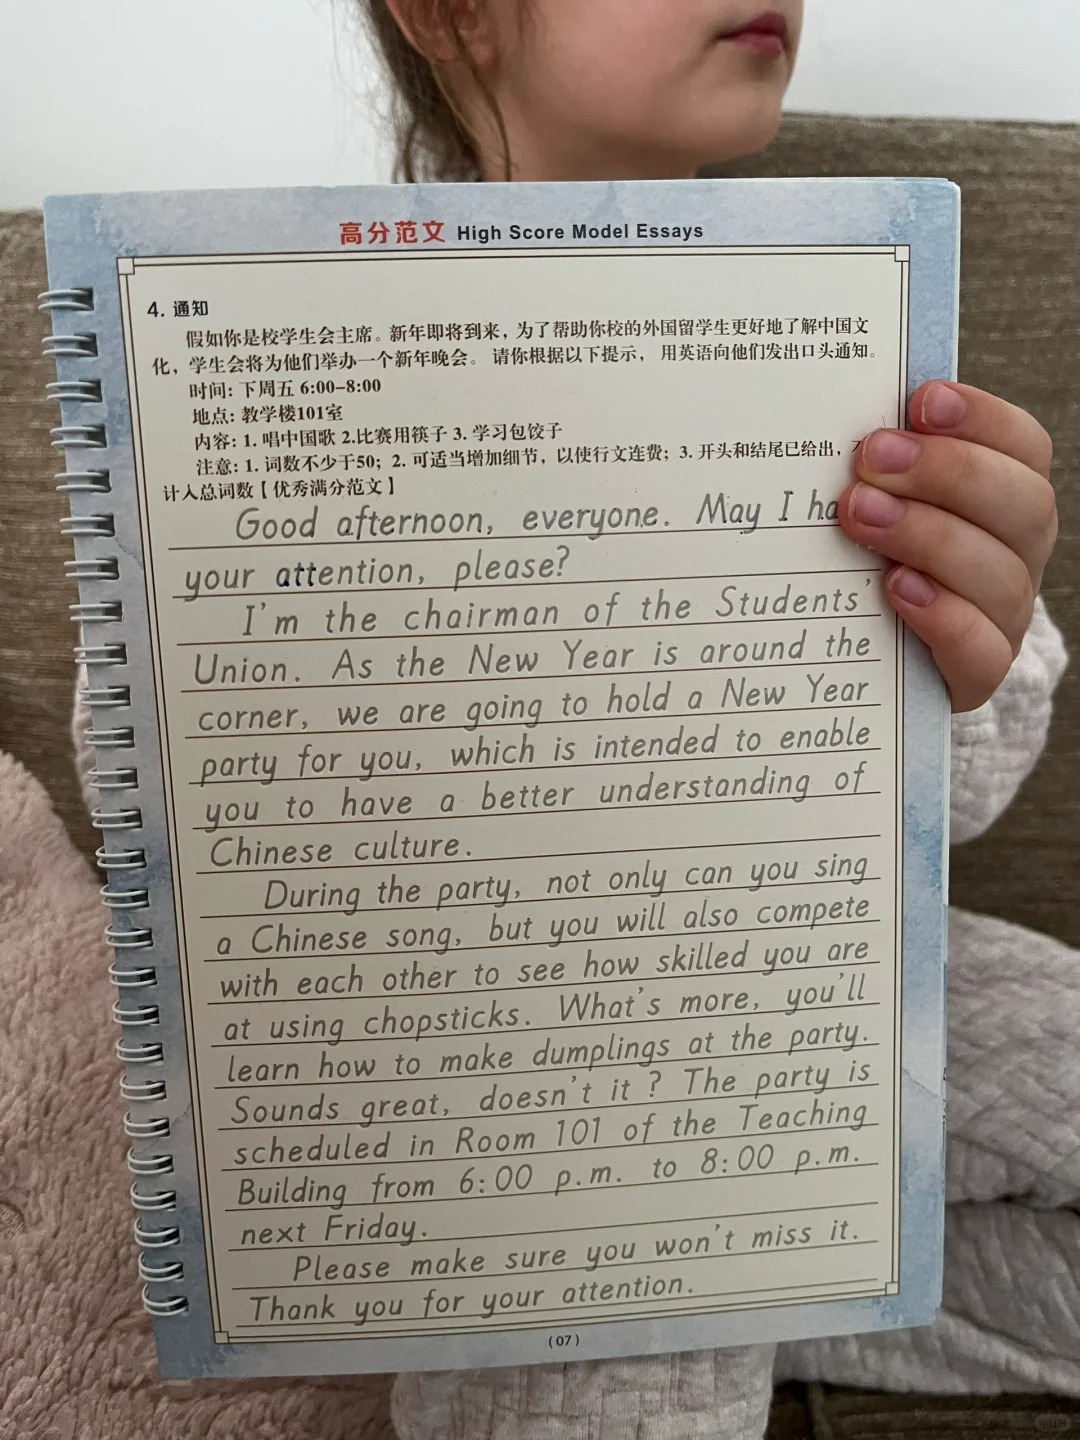 高分范文 High Score Model Essays
4. 通知
假如你是校学生会主席。新年即将到来，为了帮助你校的外国留学生更好地了解中国文
化，学生会将为他们举办一个新年晚会。请你根据以下提示，用英语向他们发出口头通知。
时间: 下周五 6:00-8:00
地点: 教学楼101室
内容: 1. 唱中国歌 2.比赛用筷子 3. 学习包饺子
注意: 1. 词数不少于50; 2. 可适当增加细节，以使行文连费; 3. 开头和结尾已给出，
计入总词数【优秀满分范文】
Good afternoon, everyone. May I ha
your attention, please?
I'm the chairman of the Students'
Union. As the New Year is around the
corner, we are going to hold a New Year
party for you, which is intended to enable
you to have a better understanding of
Chinese culture.
During the party, not only can you sing
a Chinese song, but you will also compete
with each other to see how skilled you are
at using chopsticks. What's more, you'll
learn how to make dumplings at the party.
Sounds great, doesn't it? The party is
scheduled in Room 101 of the Teaching
Building from 6:00 p.m. to 8:00 p.m.
next Friday.
Please make sure you won't miss it.
Thank you for your attention.
(07)
小红书